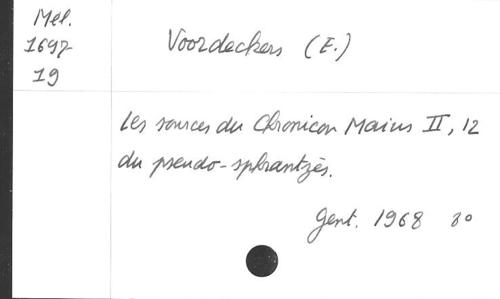 Mél.
1697
19
Voordeckers (E.)
Les sources du Chronicon Maius II, 12
du pseudo-sphrantzès.
Gent. 1968 8°